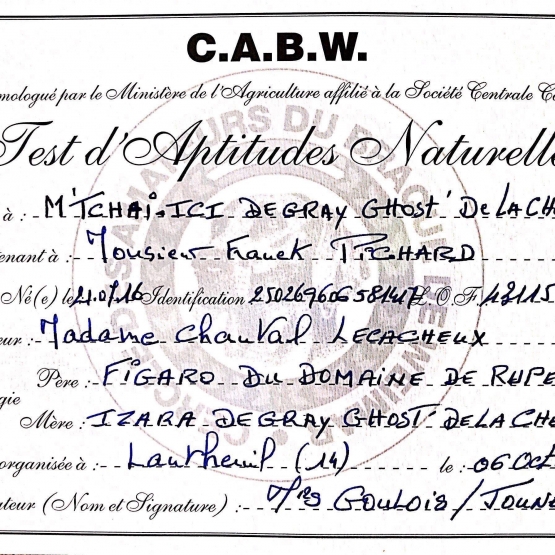 C.A.B.W.
mologué par le Ministère de l'Agriculture affilié à la Société Centrale C
Test d'Aptitudes Naturelle
à : M'TCHAI.ICI DEGRAY GHOST' DE LA CH
tenant à : Monsieur Franck PICHARD
Né(e) le 21.07.16 Identification L.O.F. 48115
eur : Madame Chantal LECACHEUX
Père : FIGARO DU DOMAINE DE RUPE
gie
Mère : IZARA DEGRAY GHOST' DE LA CHE
organisée à : (14) le : 06 Oct
ateur (Nom et Signature) : GOULOIS / JOUN